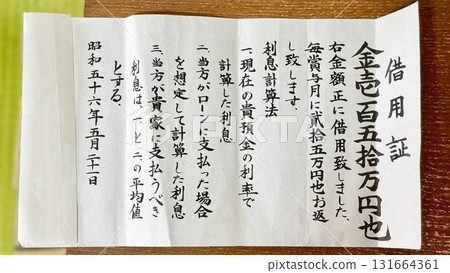 借用証
金壱百五拾万円也
右金額正に借用致しました、
毎賞与月に弐拾五万円也お返
し致します。
利息計算法
一、現在の貴預金の利率で
計算した利息
二、当方がローンに支払った場合
を想定して計算した利息
三、当方が貴家に支払うべき
利息は、一と二の平均値
とする、
昭和五十六年五月二十一日
PIXTA
pixta.jp - 131664361